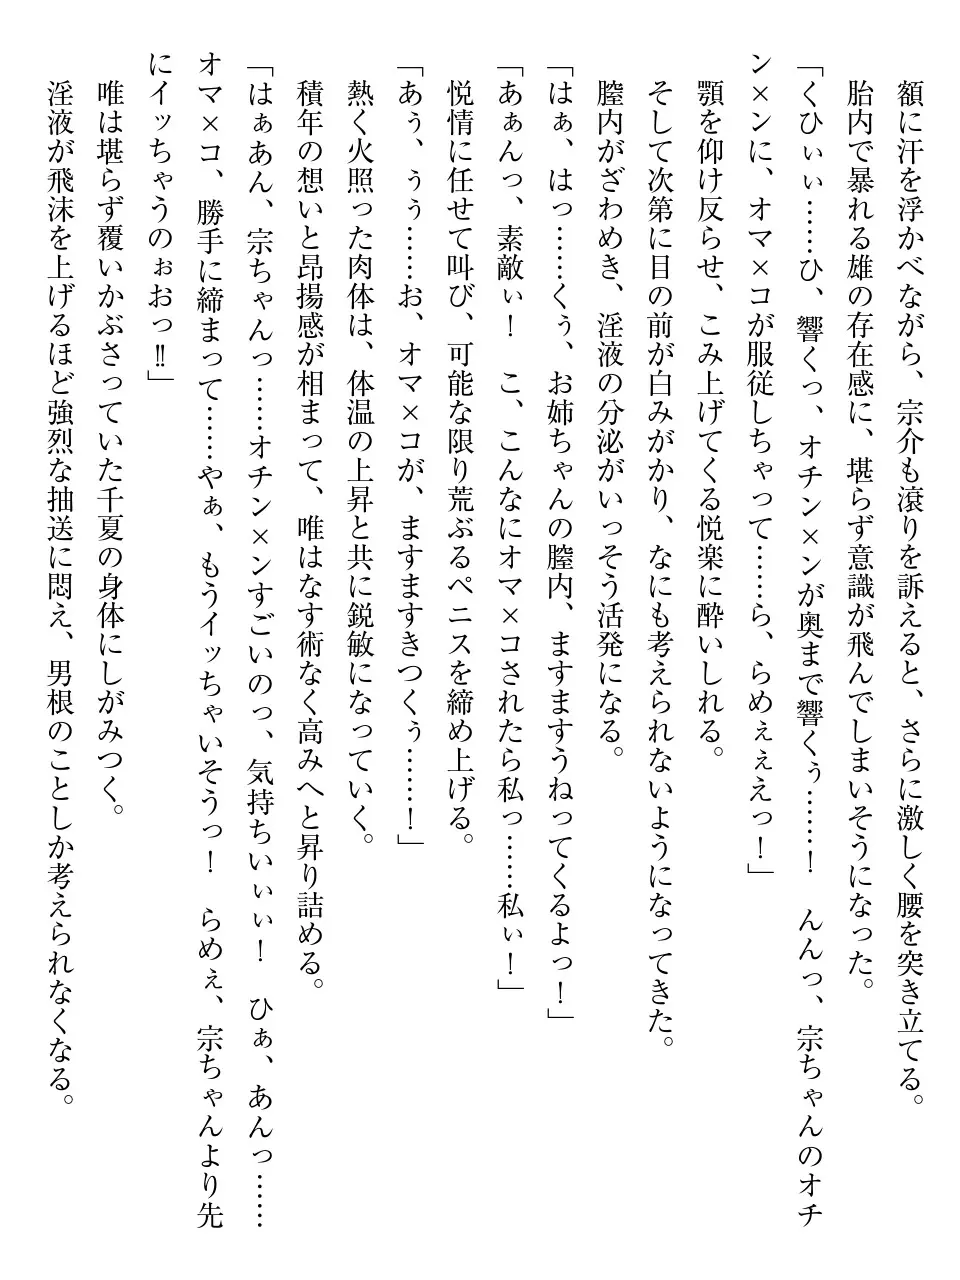 額に汗を浮かべながら、宗介も滾りを訴えると、さらに激しく腰を突き立てる。
胎内で暴れる雄の存在感に、堪らず意識が飛んでしまいそうになった。
「くひぃぃ……ひ、響くっ、オチン×ンが奥まで響くぅ……！　んんっ、宗ちゃんのオチ
ン×ンに、オマ×コが服従しちゃって……ら、らめぇぇえっ！」
顎を仰け反らせ、こみ上げてくる悦楽に酔いしれる。
そして次第に目の前が白みがかり、なにも考えられないようになってきた。
膣内がざわめき、淫液の分泌がいっそう活発になる。
「はぁ、はっ……くぅ、お姉ちゃんの膣内、ますますうねってくるよっ！」
「あぁんっ、素敵ぃ！　こ、こんなにオマ×コされたら私っ……私ぃ！」
悦情に任せて叫び、可能な限り荒ぶるペニスを締め上げる。
「あぅ、ぅぅ……お、オマ×コが、ますますきつくぅ……！」
熱く火照った肉体は、体温の上昇と共に鋭敏になっていく。
積年の想いと昂揚感が相まって、唯はなす術なく高みへと昇り詰める。
「はぁあん、宗ちゃんっ……オチン×ンすごいのっ、気持ちいぃぃ！　ひぁ、あんっ……
オマ×コ、勝手に締まって……やぁ、もうイッちゃいそうっ！　らめぇ、宗ちゃんより先
にイッちゃうのぉおっ‼」
唯は堪らず覆いかぶさっていた千夏の身体にしがみつく。
淫液が飛沫を上げるほど強烈な抽送に悶え、男根のことしか考えられなくなる。